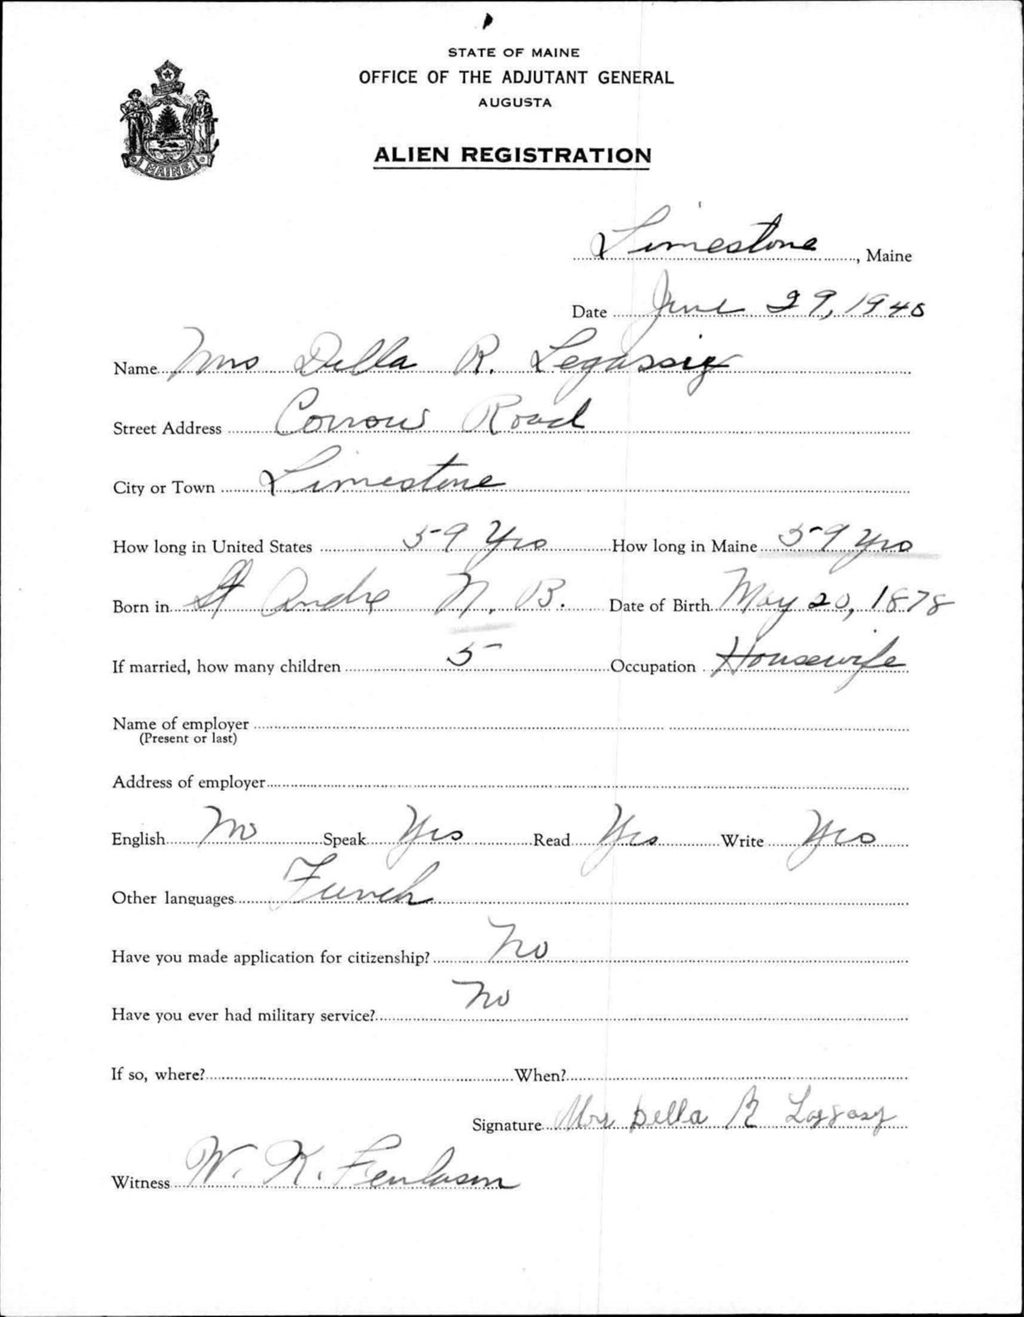 STATE OF MAINE
OFFICE OF THE ADJUTANT GENERAL
AUGUSTA
ALIEN REGISTRATION
MAINE
Limestone, Maine
Date June 29, 1940
Name Mrs Della R. Legassig
Street Address Road
City or Town Limestone
How long in United States 59 Yrs How long in Maine 59 Yrs
Born in St Andre N. B. Date of Birth May 20, 1878
If married, how many children 5 Occupation Housewife
Name of employer
(Present or last)
Address of employer
English No Speak Yes Read Yes Write Yes
Other languages French
Have you made application for citizenship? No
Have you ever had military service? No
If so, where? When?
Signature Mrs Della R
Witness W. K.